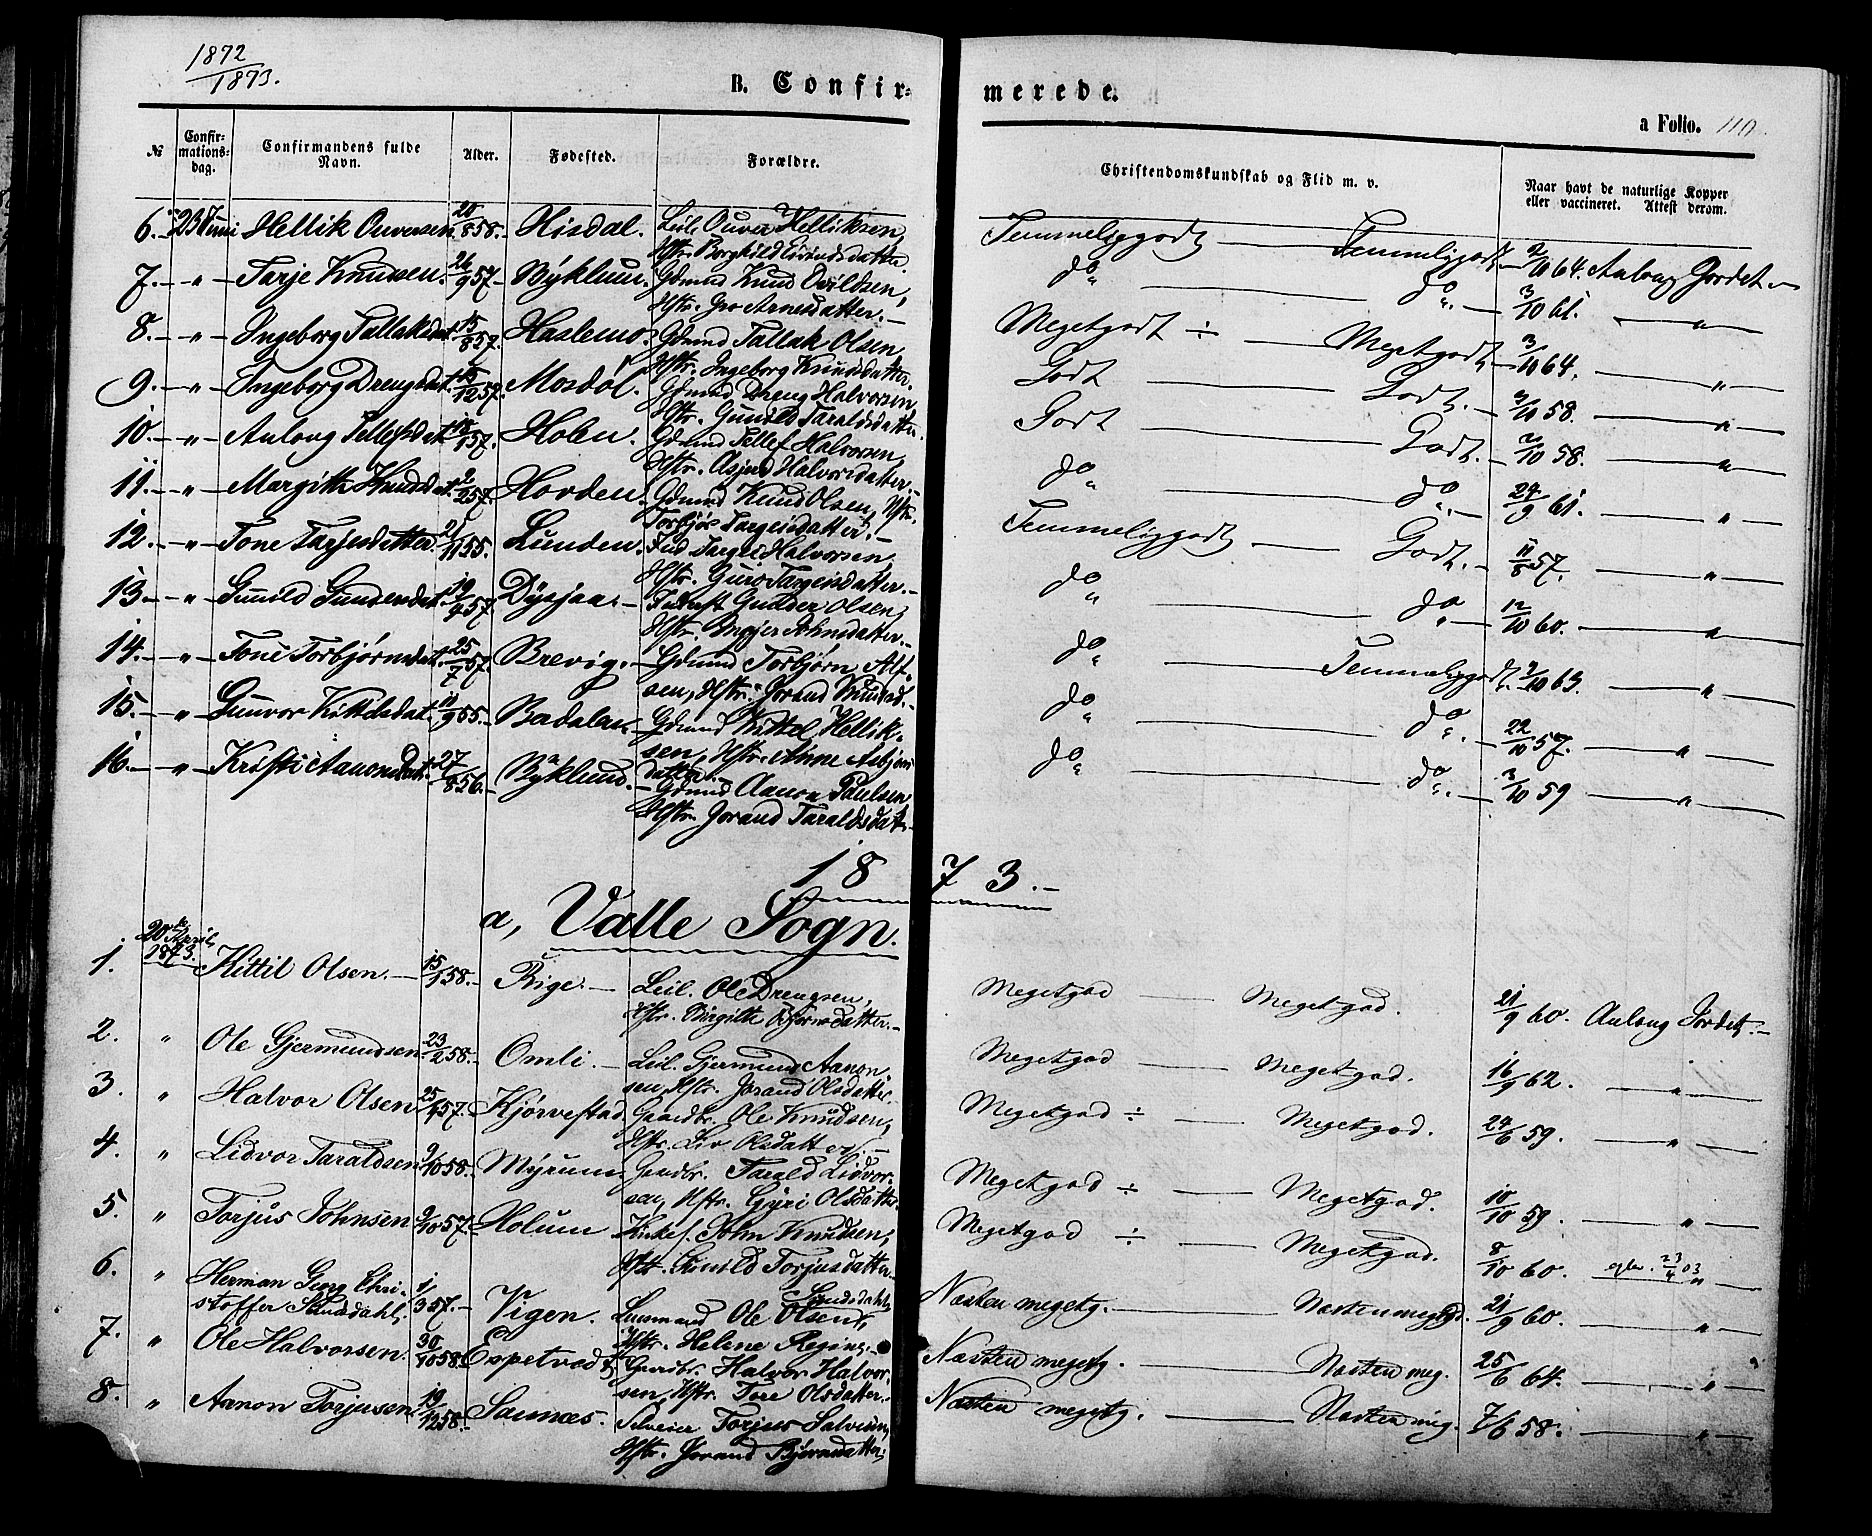 1872
1873.
B. Confir-
merede.
a Folio. 110.
№
Confir-
mations-
dag.
Confirmandens fulde
Navn.
Alder.
Fødested.
Forældre.
Christendomskundskab og Flid m. v.
Naar havt de naturlige Kopper
eller vaccineret. Attest derom.
6. 23 Juni Hellik Ouversen 20/8 58. Hisdal. Leil. Ouver Helliksen,
Hstr. Borghild Eivindsdatter.
Temmeliggodt — Temmeliggodt. 2/10 64. Aulong Jordet.
7. " Tarje Knudsen. 26/9 57. Byklum. Gdmnd Knud Eivildsen,
Hstr. Gro Arnesdatter.
do — do. 3/10 61. — "
8. " Ingeborg Tallaksdat. 15/8 57. Haslemo. Gdmnd Tallak Olsen
Hstr. Ingeborg Knudsdatter.
Megetgodt ÷ — Megetgodt. 3/10 64. — "
9. " Ingeborg Drengsdat. 15/12 57. Mosdøl. Gdmnd Dreng Halvorsen
Hstr. Gunild Taraldsdatter.
Godt — Godt. 3/10 58. — "
10. " Aulong Tellefsdat. 18/1 57. Holen. Gdmnd Tellef Halvorsen,
Hstr. Asjerd Halvorsdatter.
Godt — Godt. 2/10 58. — "
11. " Margith Knudsdat. 2/2 57. Hovden. Gdmnd Knud Olsen, Hstr.
Torbjør Targeisdatter.
do — do. 24/9 61. — "
12. " Tone Tarjesdatter. 21/11 55. Lunden. Ind. Targei Halvorsen,
Hstr. Guro Targeisdatter.
Temmeliggodt — Godt. 11/8 57. — "
13. " Gunild Gundersdat. 19/4 57. Dysjaa. Gunder Olsen,
Hstr. Ingjer Johnsdatter.
do — do 12/10 60. — "
14. " Tone Torbjørnsdat. 25/7 57. Brevig. Gdmnd Torbjørn Alf-
sen, Hstr. Jorand Knudsd.
do — Temmeliggodt. 2/10 63. — "
15. " Gunvor Kittelsdat. 11/9 55. Badalen. Gdmnd Kittel Hellik-
sen, Hstr. Anne Asbjørns
datter.
do — do. 22/10 57. — "
16. " Kristi Aanonsdat. 27/8 56. Byklund. Gdmnd Aanon Paulsen
Hstr. Jorand Taraldsdat.
do — do. 3/10 59 — "
1873.
a, Valle Sogn.
1. 20de April 1873. Kittil Olsen. 15/1 58. Rige. Leil. Ole Drengsen,
Hstr. Birgitte Bjørnsdatter.
Megetgod — Megetgod. 21/9 60. Aulong Jordet.
2. " Ole Gjermundsen 23/2 58. Omli. Leil. Gjermund Aanon-
sen, Hstr. Jorand Olsdatter
Megetgod — Megetgod. 16/9 62. — "
3. " Halvor Olsen 25/4 57. Kjørvestad Gaardbr. Ole Knudsen,
Hstr. Liv Olsdatter.
Megetgod ÷ — Megetgod. 24/6 59. — "
4. " Lidvor Taraldsen 9/10 58. Myrum Gaardbr. Tarald Lidvor-
sen, Hstr. Gyri Olsdatter
Megetgod ÷ — Megetgod. 10/10 59. — "
5. " Torjus Johnsen 9/10 57. Holum John Knudsen,
Hstr. Gunild Torjusdatter.
Megetgod ÷ — Megetgod. 8/10 60. 23/4 03 "
6. " Herman Georg Chri-
stoffer Sundsdahl. 1/3 57. Vigen. Lensmand Ole Olsen Sundsdahl,
Hstr. Helene Regine.
Næsten megetg. — Næsten megetgd. 21/9 60. — "
7. " Ole Halvorsen. 30/10 58. Espetvedt Gaardbr. Halvor Halvor-
sen, Hstr. Tore Olsdatter.
Næsten megetg. — Næsten meg. 25/6 64. — "
8. " Aanon Torjusen 19/12 58. Saunæs. Selveier Torjus Salvesen,
Hstr. Jorand Bjørnsdatter.
Næsten megetg. — Næsten meg. 7/6 58. — "